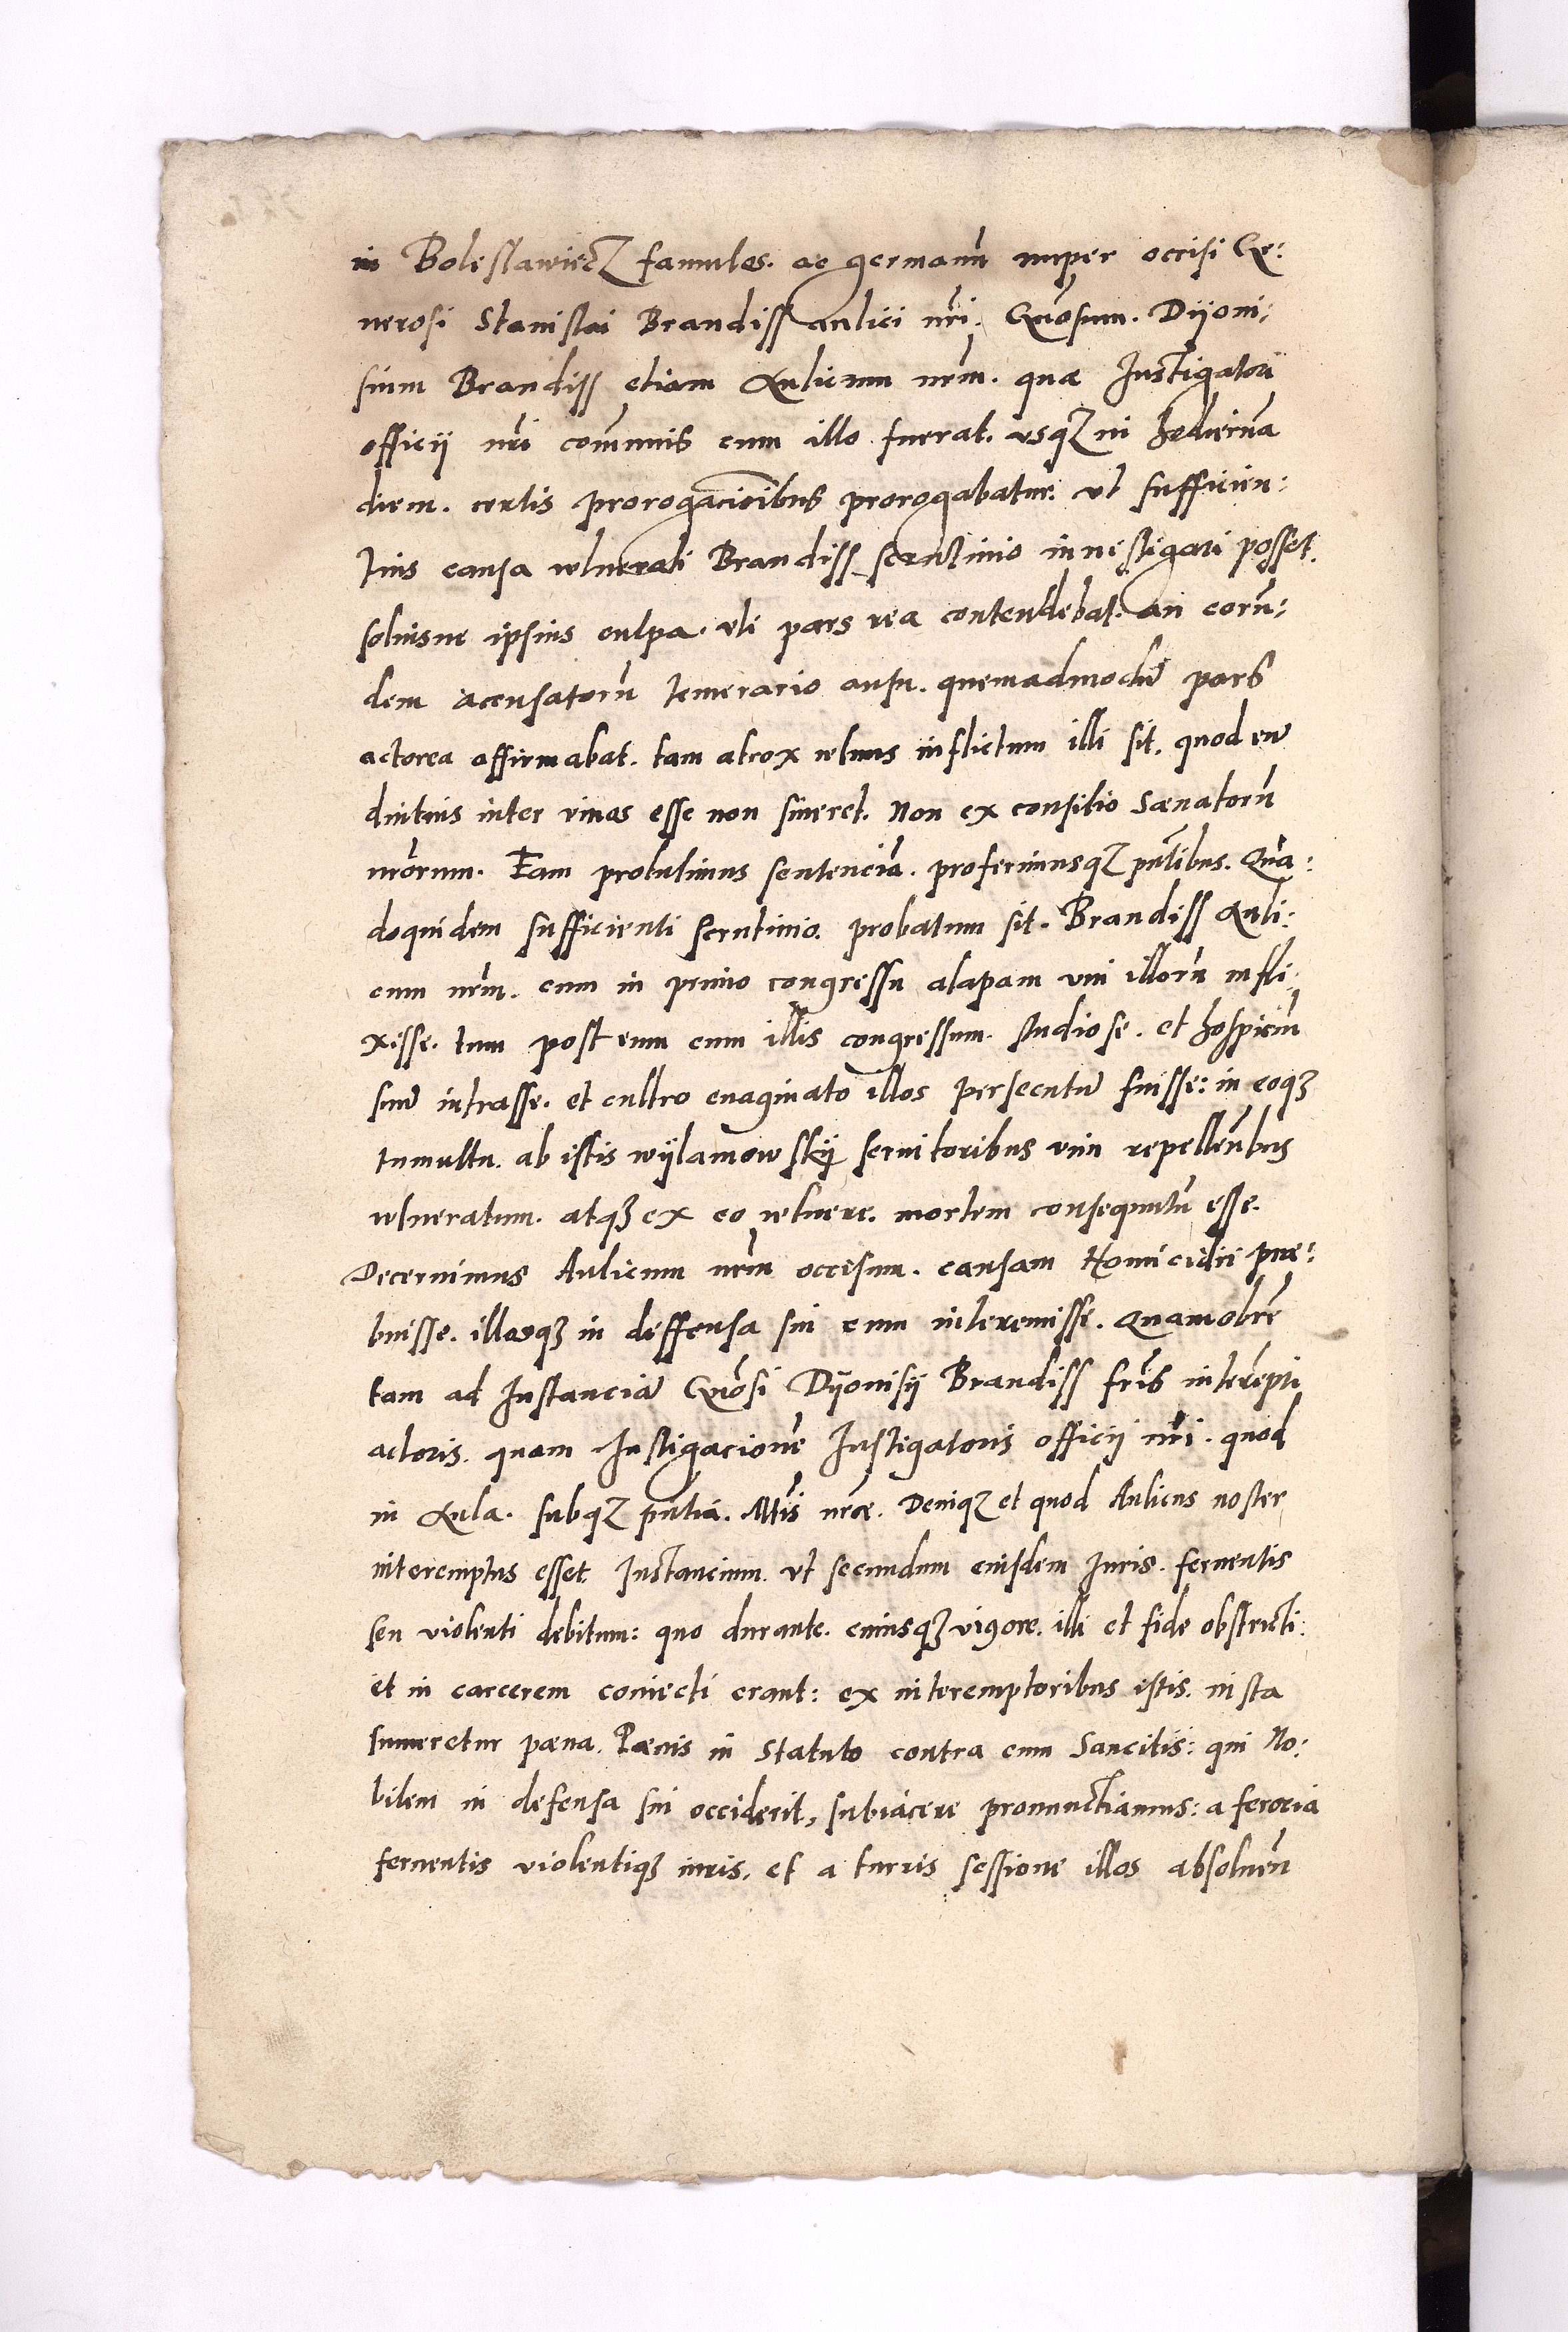 in Boleslawiecz famulos. ac germanũ nuper occisi Ge:
nerosi Stanislai Brandiss aulici nr̃i. Gnõsum. Dyoni:
sium Brandiss etiam Aulicum nr̃m. quæ Instigatori
officij nr̃i com̃unis cum illo fuerat. vsqz in hodiernã
diem. certis prorogacioibus̃ prorogabatur. vt sufficien:
tius causa vlnerati Brandiss scrutinio inuestigari posset.
soliusne ipsius culpa. vti pars rea contendebat. an eorũ:
dem accusatorũ temerario ausu. quemadmodũ pars
actorea affirmabat. tam atrox vlnus inflictum illi sit. quod eũ
diutius inter viuos esse non sineret. Non ex consilio Sænatorũ
nr̃orum. Eam protulimus sentenciã. proferimusqz pñtibus. Quã:
doquidem sufficienti scrutinio. probatum sit. Brandiss Auli:
cum nr̃m. cum in primo congressu alapam vni illorũ infli:
xisse. tum post eum cum illis congressum. studiose. et hospiciũ
suũ intrasse. et cultro euaginato illos persecutũ fuisse: in eoqz
tumultu. ab istis wylamowskij seruitoribus vim repellẽtibus
vlneratum. atqz ex eo vlnere. mortem consequutũ esse.
Decernimus Aulicum nr̃m occisum. causam Homicidii præ:
buisse. illosqz in deffensa sui eum interemisse. Quamobrẽ
tam ad Instanciã Gnõsi Dyonisij Brandiss fr̃is interẽpti
actoris. quam Instigacionẽ Instigatoris officij nr̃i. quod
in Aula. subqz pñtia. Mt̃is nr̃æ. Deniqz et quod Aulicus noster
interemptus esset Instancium. vt secundum eiusdem Iuris. feruentis
seu violenti debitum: quo durante. eiusqz vigore. illi et fide obstricti:
et in carcerem coniecti erant: ex interemptoribus istis. iusta
sumeretur pæna. Pænis in Statuto contra eum Sancitis: qui No:
bilem in defensa sui occiderit, subiacere pronunctiamus: a ferocia
feruentis violentiqz iuris. et a turris sessione illos absoluẽn